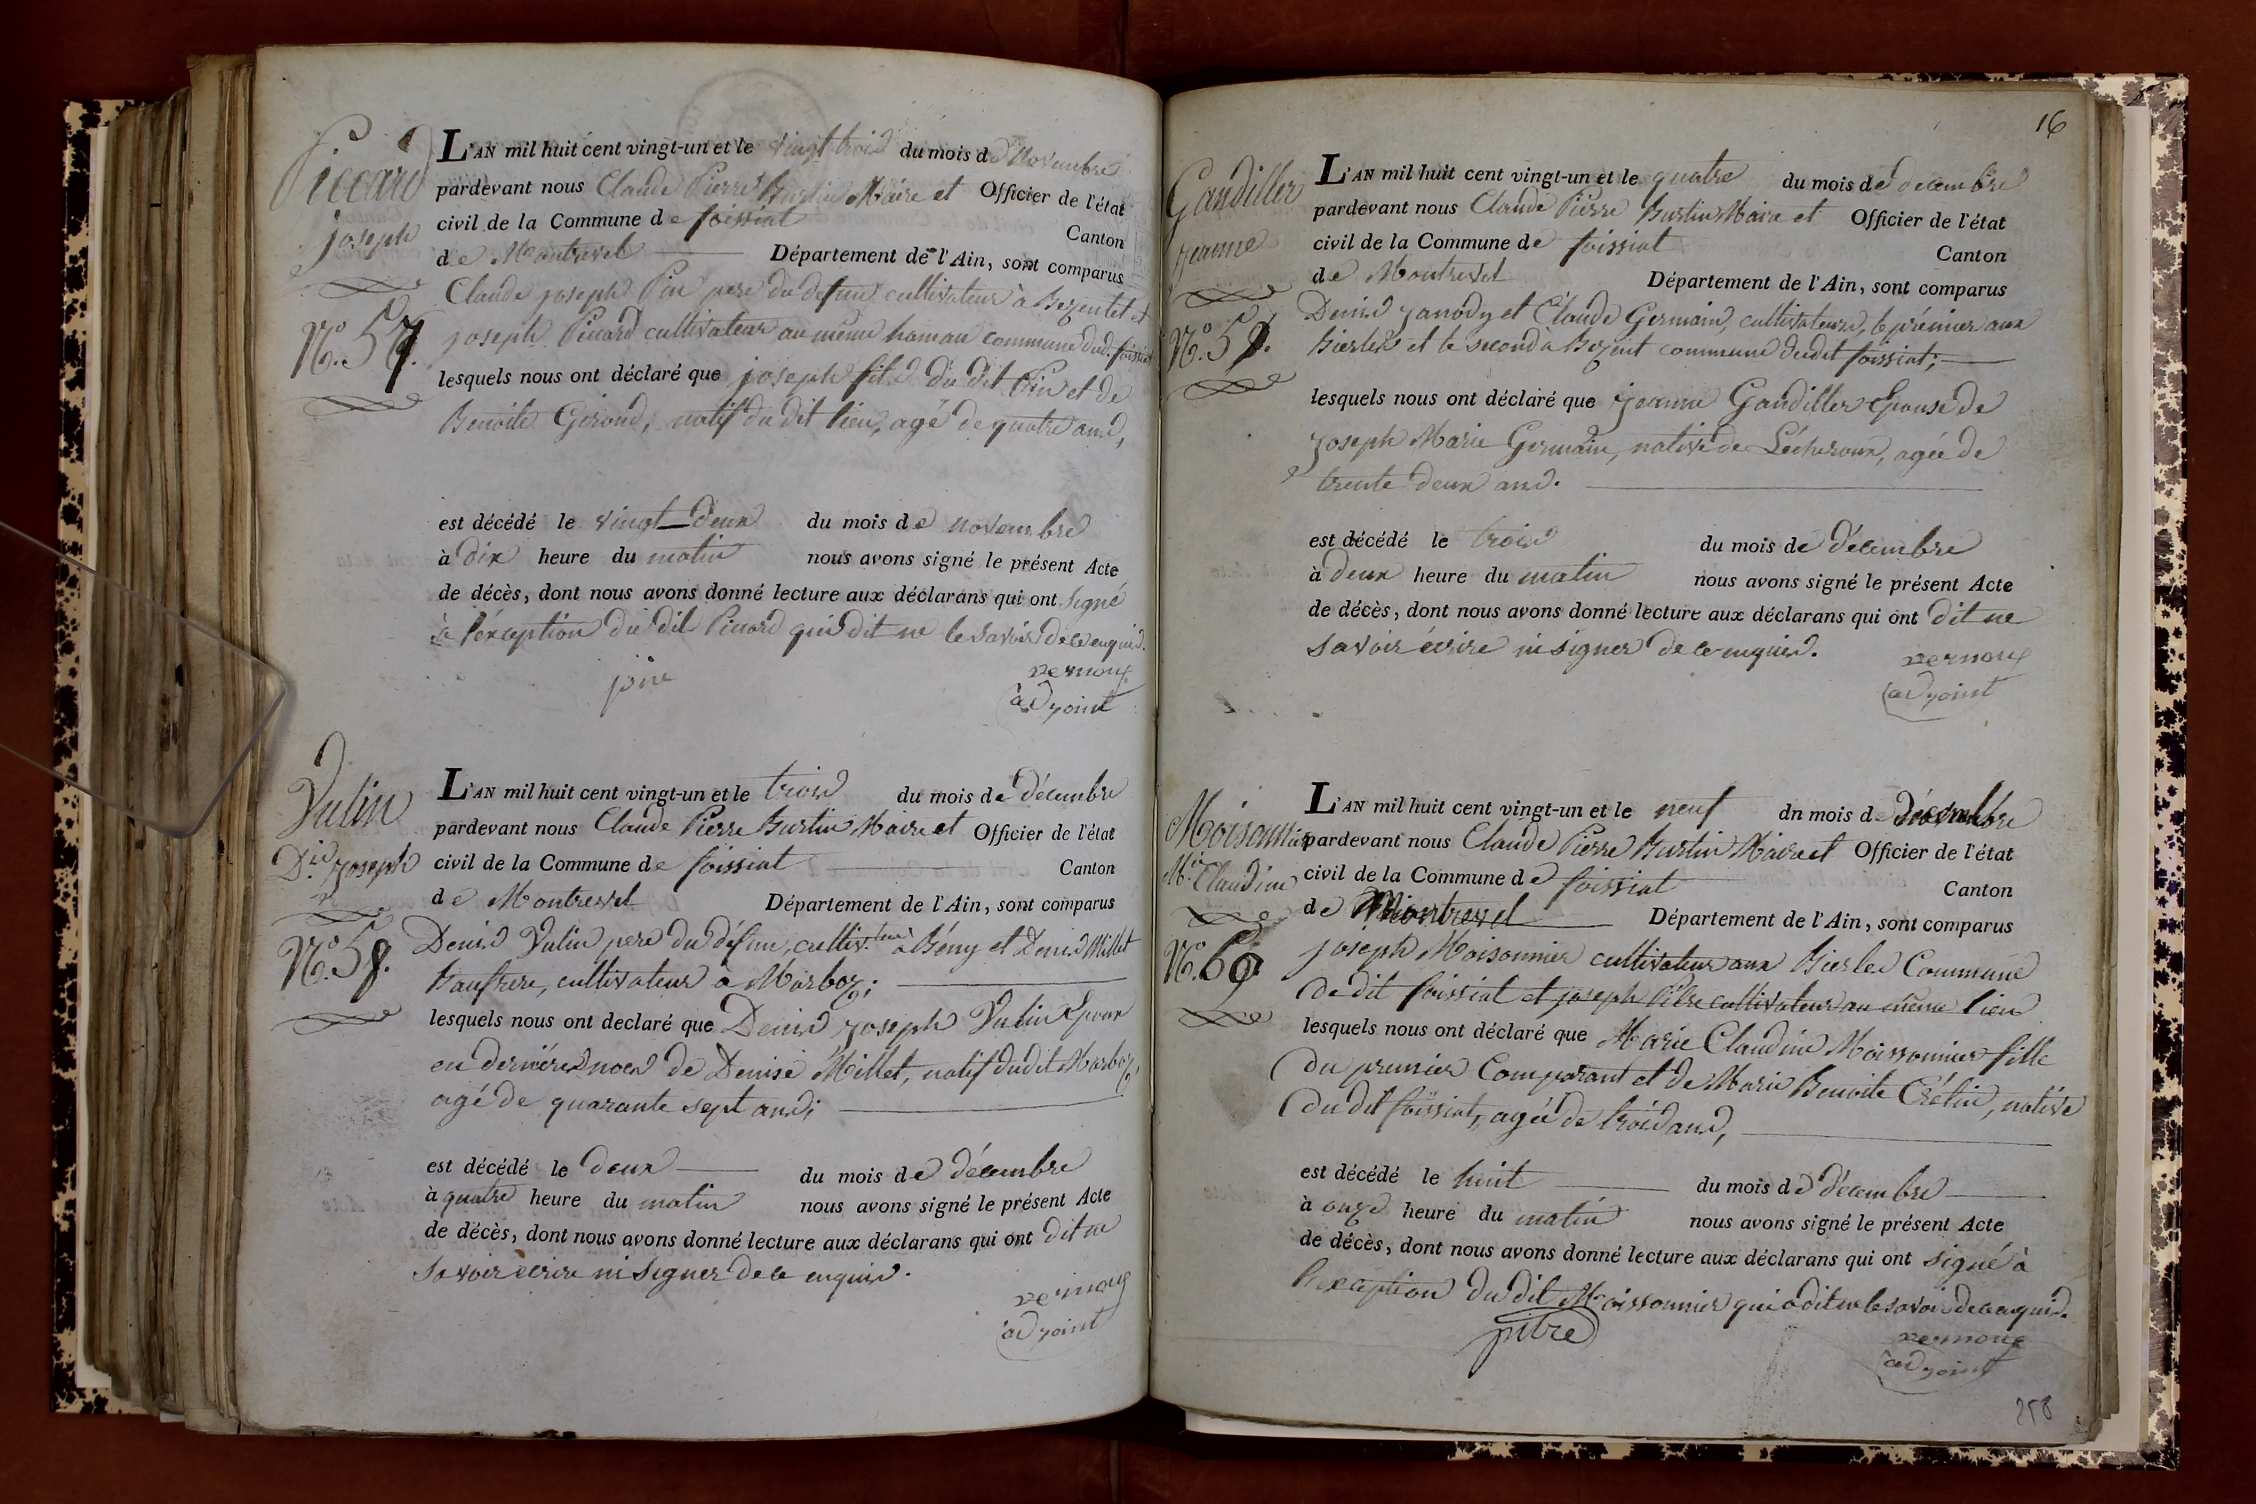 Piccard
joseph
N.º 57.
L'AN mil huit cent vingt-un et le vingt trois du mois de Novembre
pardevant nous Claude Pierre Burtin Maire et Officier de l'état
civil de la Commune de foissiat Canton
de Montrevel Département de l'Ain, sont comparus
Claude joseph Pin pere du defunt cultivateur à Bezentet et
joseph Picard cultivateur au même hamau commune dud. foissiat
lesquels nous ont déclaré que joseph fils du dit Pin et de
Benoite Giroud, natif du dit lieu, agé de quatre ans,
est décédé le vingt-deux du mois de novembre
à dix heure du matin nous avons signé le présent Acte
de décès, dont nous avons donné lecture aux déclarans qui ont signé
à l'éxception du dit Picard qui dit ne le savoir de ce enquis.
vernoux
adjoint
Vulin
D.is joseph
N.º 58.
L'AN mil huit cent vingt-un et le trois du mois de décembre
pardevant nous Claude Pierre Burtin Maire et Officier de l'état
civil de la Commune de foissiat Canton
de Montrevel Département de l'Ain, sont comparus
Denis Vulin pere du défunt, cultiv.teur à Bény et Denis Millet
Baufrere, cultivateur à Marboz;
lesquels nous ont declaré que Denis joseph Vulin Epoux
en dernières noces de Denise Millet, natif dudit Marboz,
agé de quarante sept ans;
est décédé le deux du mois de décembre
à quatre heure du matin nous avons signé le présent Acte
de décès, dont nous avons donné lecture aux déclarans qui ont dit ne
savoir écrire ni signer de ce enquis.
vernoux
adjoint
16
Gandiller
jeanne
N.º 59.
L'AN mil huit cent vingt-un et le quatre du mois de décembre
pardevant nous Claude Pierre Burtin Maire et Officier de l'état
civil de la Commune de foissiat Canton
de Montrevel Département de l'Ain, sont comparus
Denis janody et Claude Germain, cultivateurs, le prémier aux
Bierles et le second à Bezent commune dudit foissiat;
lesquels nous ont déclaré que jeanne Gandiller Epouse de
joseph Marie Germain, native de Lécheroux, agée de
trente deux ans.
est décédé le trois du mois de décembre
à deux heure du matin nous avons signé le présent Acte
de décès, dont nous avons donné lecture aux déclarans qui ont dit ne
savoir écrire ni signer de ce enquis.
vernoux
adjoint
Moisonnier
M.ie Claudine
N.º 60
L'AN mil huit cent vingt-un et le neuf dn mois de décembre
pardevant nous Claude Pierre Burtin Maire et Officier de l'état
civil de la Commune de foissiat Canton
de Montrevel Département de l'Ain, sont comparus
joseph Moisonnier cultivateur aux Bierles Commune
de dit foissiat et joseph Pitre cultivateur au même lieu
lesquels nous ont déclaré que Marie Claudine Moissonnier fille
du premier Comparant et de Marie Benoite Crétin, native
du dit foissiat, agée de trois ans,
est décédé le huit du mois de décembre
à onze heure du matin nous avons signé le présent Acte
de décès, dont nous avons donné lecture aux déclarans qui ont signé à
l'exception du dit Moissonnier qui a dit ne le savoir de ce enquis.
pitre
vernoux
adjoint
258